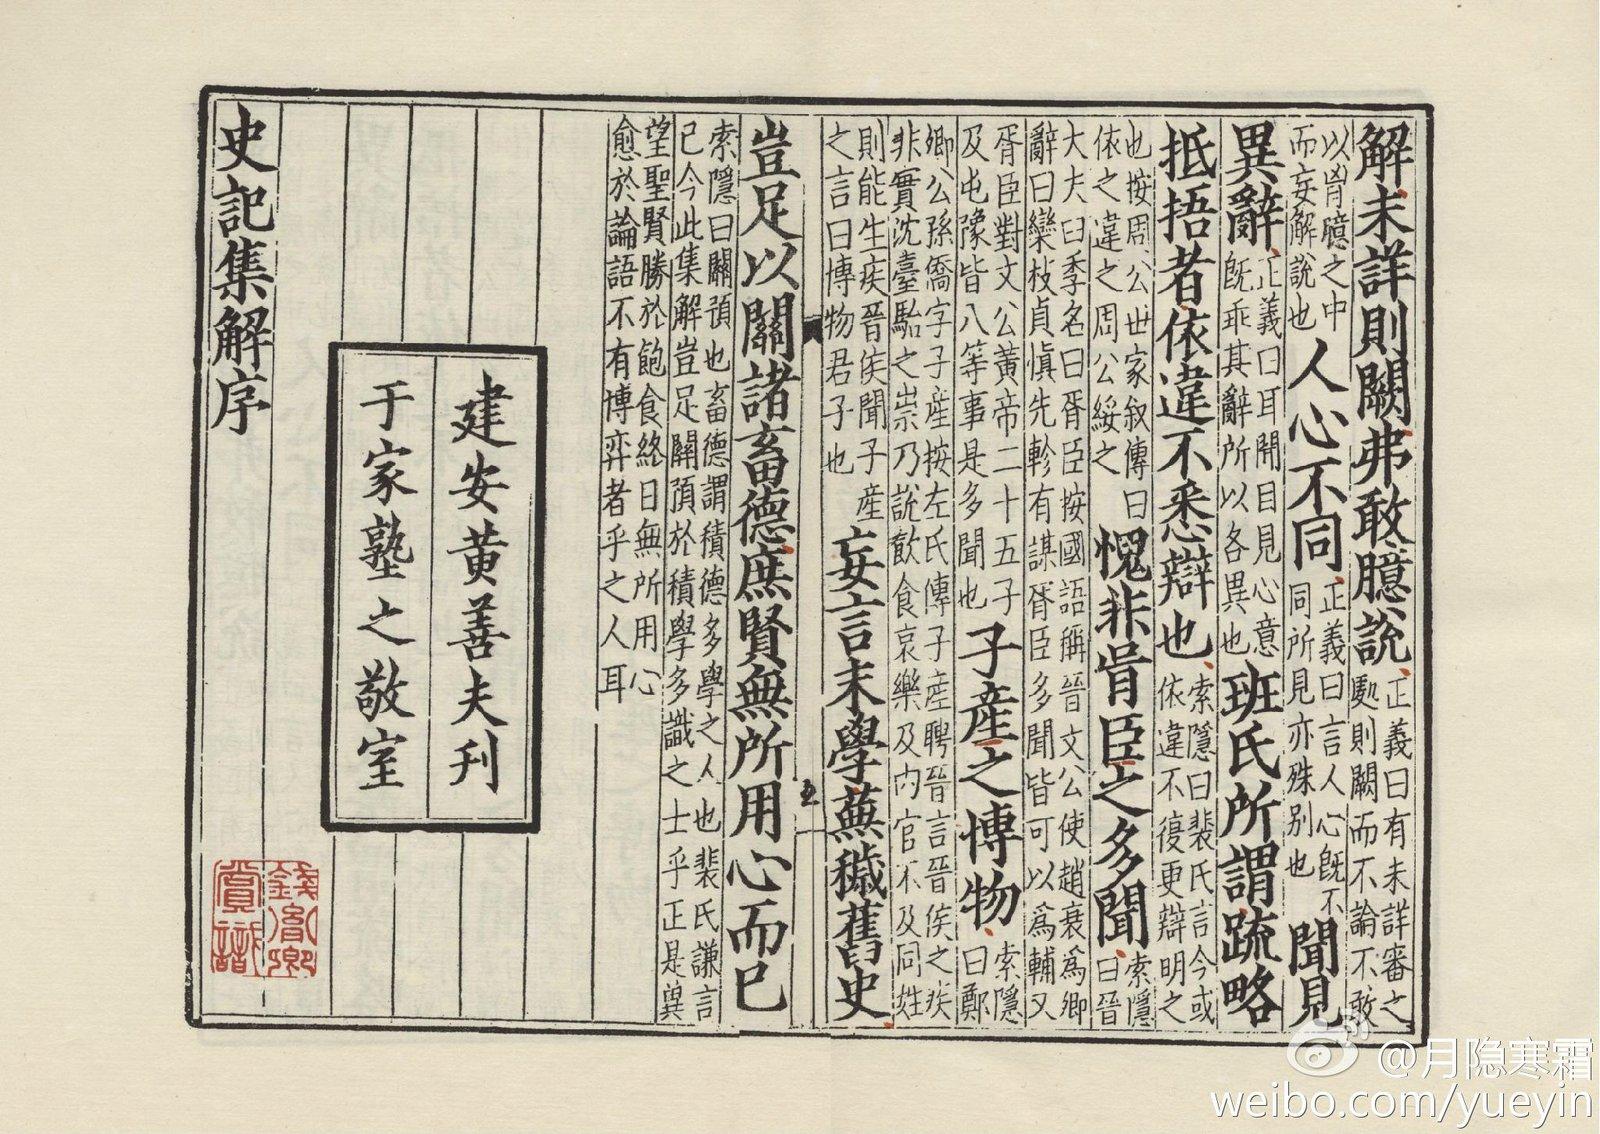 解未詳則闕弗敢臆說正義曰有未詳審之
處則闕而不論不敢
以胷臆之中
而妄解說也人心不同正義曰言人心旣不
同所見亦殊别也聞見
異辭正義曰耳聞目見心意
旣乖其辭所以各異也班氏所謂疏略
抵捂者依違不悉辯也索隱曰裴氏言今或
依違不復更辯明之
也按周公世家叙傳曰
依之違之周公綏之愧非胥臣之多聞索隱
曰晉
大夫臼季名曰胥臣按國語稱晉文公使趙衰爲卿
辭曰欒枝貞愼先軫有謀胥臣多聞皆可以爲輔又
胥臣對文公黃帝二十五子
及屯豫皆八等事是多聞也子產之博物索隱
曰鄭
卿公孫僑字子產按左氏傳子產聘晉言晉侯之疾
非實沈臺駘之祟乃說飲食哀樂及内官不及同姓
則能生疾晉侯聞子產
之言曰博物君子也妄言末學蕪穢舊史
五
豈足以關諸畜德庶賢無所用心而已
索隱曰關預也畜德謂積德多學之人也裴氏謙言
已今此集解豈足關預於積學多識之士乎正是冀
望聖賢勝於飽食終日無所用心
愈於論語不有博弈者乎之人耳
建安黄善夫刊
于家塾之敬室
史記集解序
錢卿
賞識
@月隐寒霜
weibo.com/yueyin